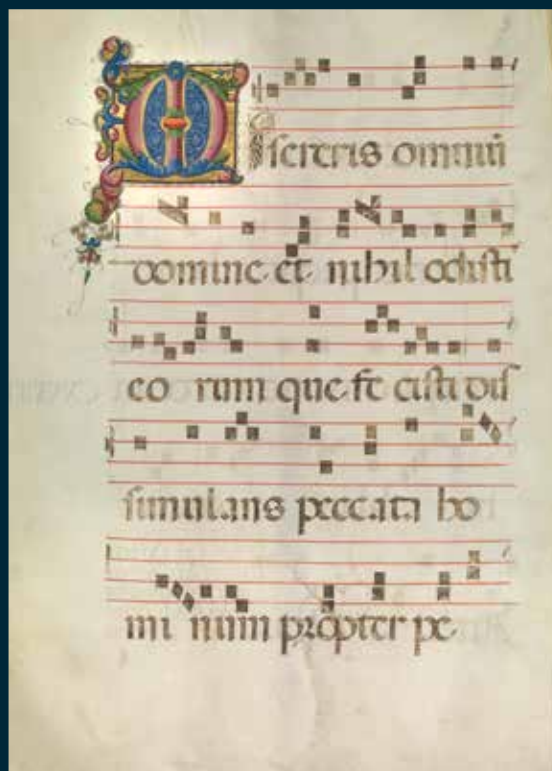 Misereris omniũ
domine et nihil odisti
eo rum que fe cisti dis
simulans peccata ho
mi num propter pe